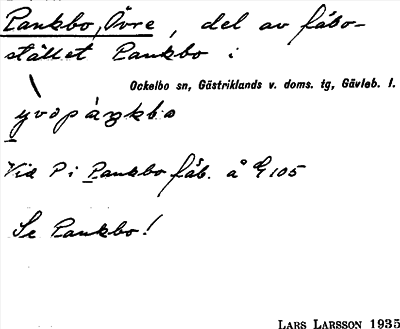 Pankbo, Övre, del av fäbo-
stället Pankbo i
Ockelbo sn, Gästriklands v. doms. tg, Gävleb. l.
Vid P i Pankbo fäb. å G 105
Se Pankbo!
LARS LARSSON 1935